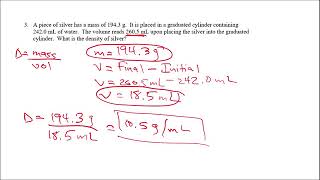 3. A piece of silver has a mass of 194.3 g. It is placed in a graduated cylinder containing
242.0 mL of water. The volume reads 260.5 mL upon placing the silver into the graduated
cylinder. What is the density of silver?
D = mass
vol
m = 194.3 g
V = Final - Initial
V = 260.5 mL - 242.0 mL
V = 18.5 mL
D = 194.3 g
18.5 mL
= 10.5 g/mL